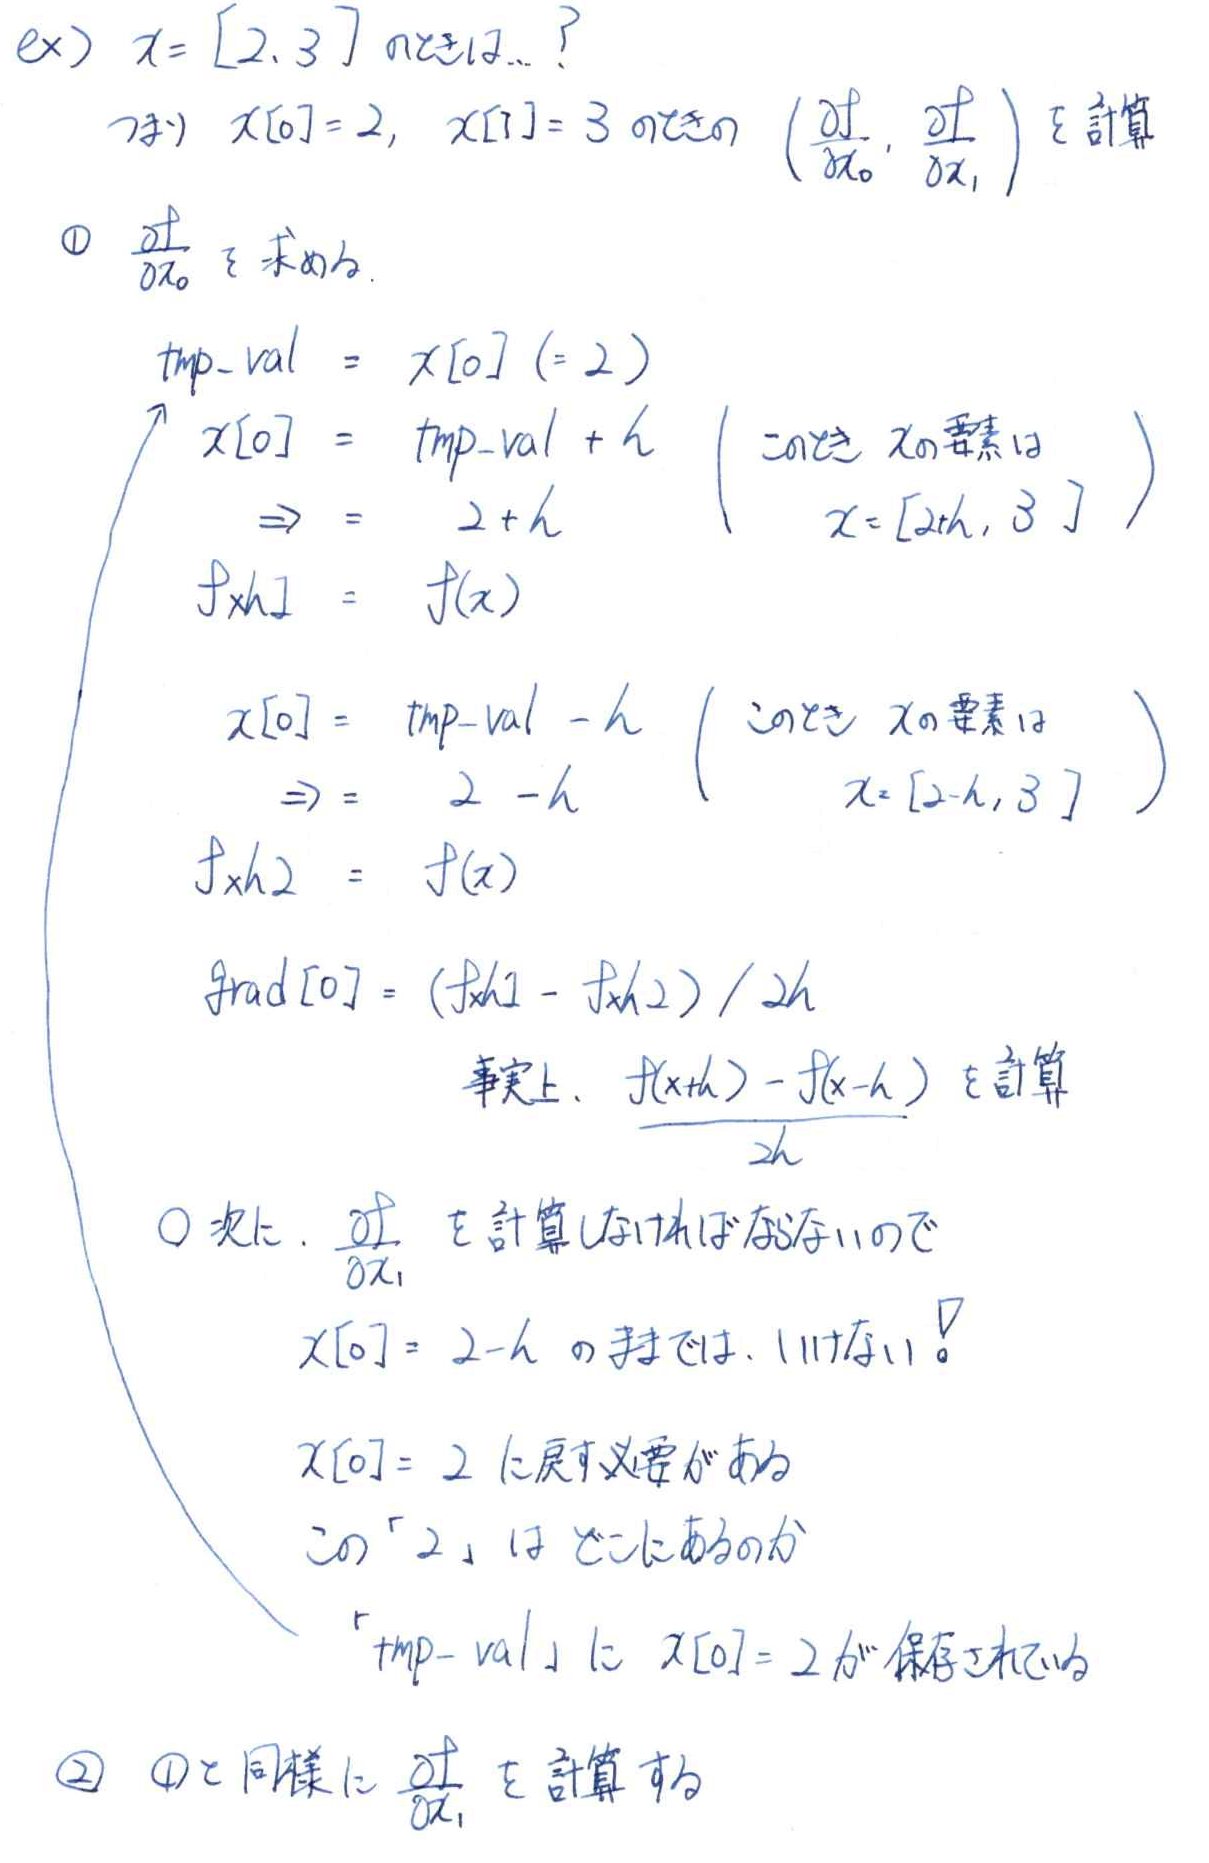 ex) x = [2, 3] のときは…?
つまり x[0] = 2, x[1] = 3 のときの (∂f/∂x₀, ∂f/∂x₁) を計算
① ∂f/∂x₀ を求める.
tmp_val = x[0] (= 2)
x[0] = tmp_val + h (このとき xの要素は
⇒ = 2 + h x = [2+h, 3])
fxh1 = f(x)
x[0] = tmp_val - h (このとき xの要素は
⇒ = 2 - h x = [2-h, 3])
fxh2 = f(x)
grad[0] = (fxh1 - fxh2) / 2h
事実上、 (f(x+h) - f(x-h))/2h を計算
○ 次に、 ∂f/∂x₁ を計算しなければならないので
x[0] = 2-h のままでは、いけない!
x[0] = 2 に戻す必要がある
この「2」は どこにあるのか
「tmp_val」に x[0] = 2 が保存されている
② ①と同様に ∂f/∂x₁ を計算する